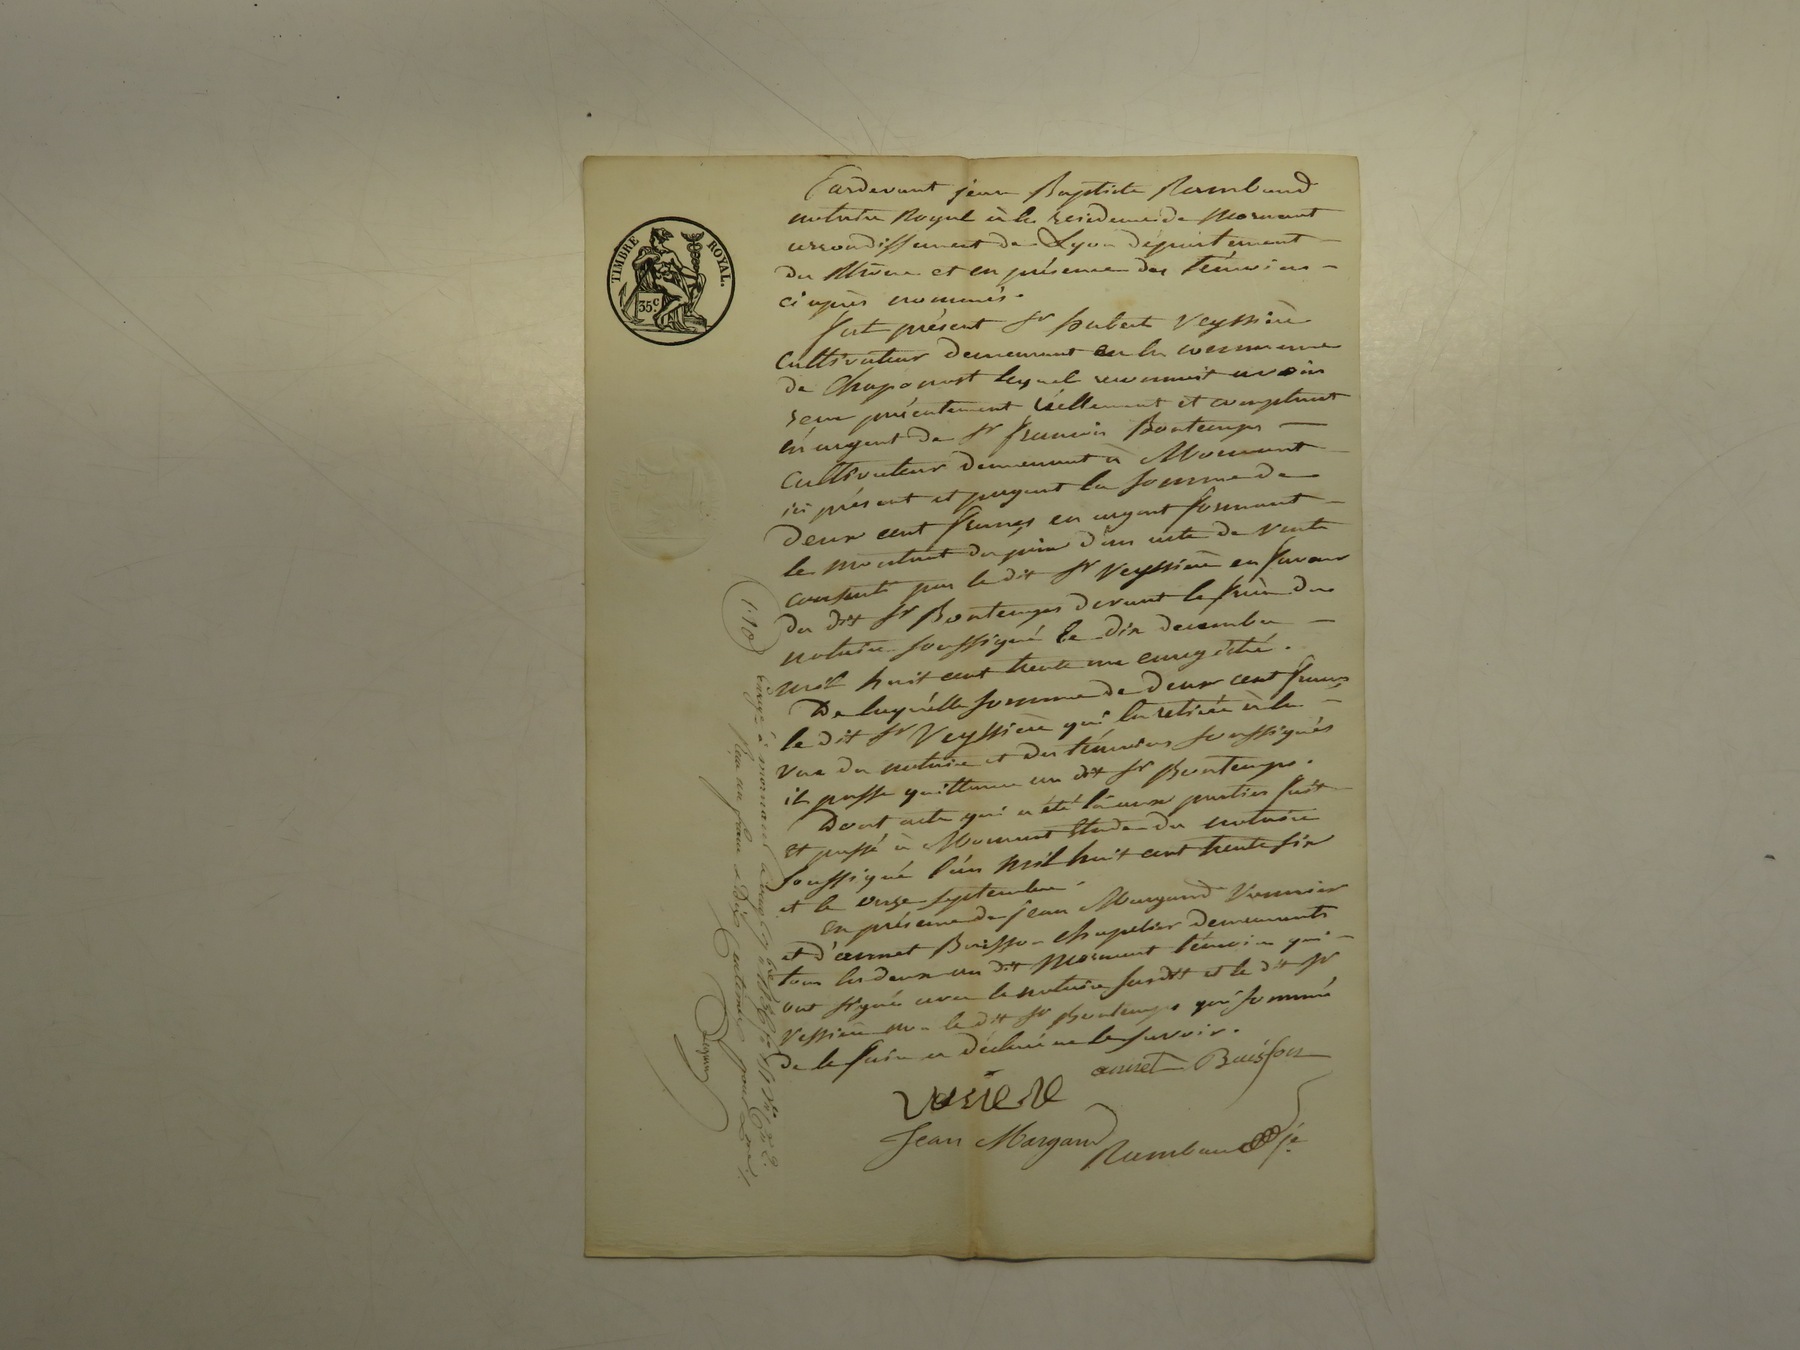 TIMBRE ROYAL.
35.c
Pardevant jean Baptiste Rambaud
notaire Royal à la residence de Mornant
arrondissement de Lyon département
du Rhône et en présence des témoins
ci après nommés.
fut présent Sr hubert Veyssière
Cultivateur demeurant en la commune
de Chaponost lequel reconnait avoir
reçu présentement réellement et comptant
en argent de Sr francois Bontemps
Cultivateur demeurant à Mornant
ici présent et payant la somme de
deux cent francs en argent formant
le montant du prix d'un acte de vente
consenti par le dit Sr Veyssière en faveur
du dit Sr Bontemps devant le frère du
notaire soussigné le dix decembre
mil huit cent trente un enregistré.
De laquelle somme de deux cent francs
le dit Sr Veyssière qui l'a retirée à la
vue du notaire et des témoins soussignés
il passe quittance au dit Sr Bontemps.
Dont acte qui a été lu aux parties fait
et passé à Mornant Etude du notaire
soussigné l'an mil huit cent trente six
et le onze septembre.
en présence de jean Margand
et d'annet Buisson chapelier demeurants
tous les deux au dit Mornant témoins qui
ont signés avec le notaire susdit et le dit Sr
Vessière non le dit Sr Bontemps qui sommé
de le faire a déclaré ne le savoir.
annet Buisson
Vesiere
Jean Margand
Rambaud je
1.10
Enregé à mornant
Reçu un franc et dix Centimes pour